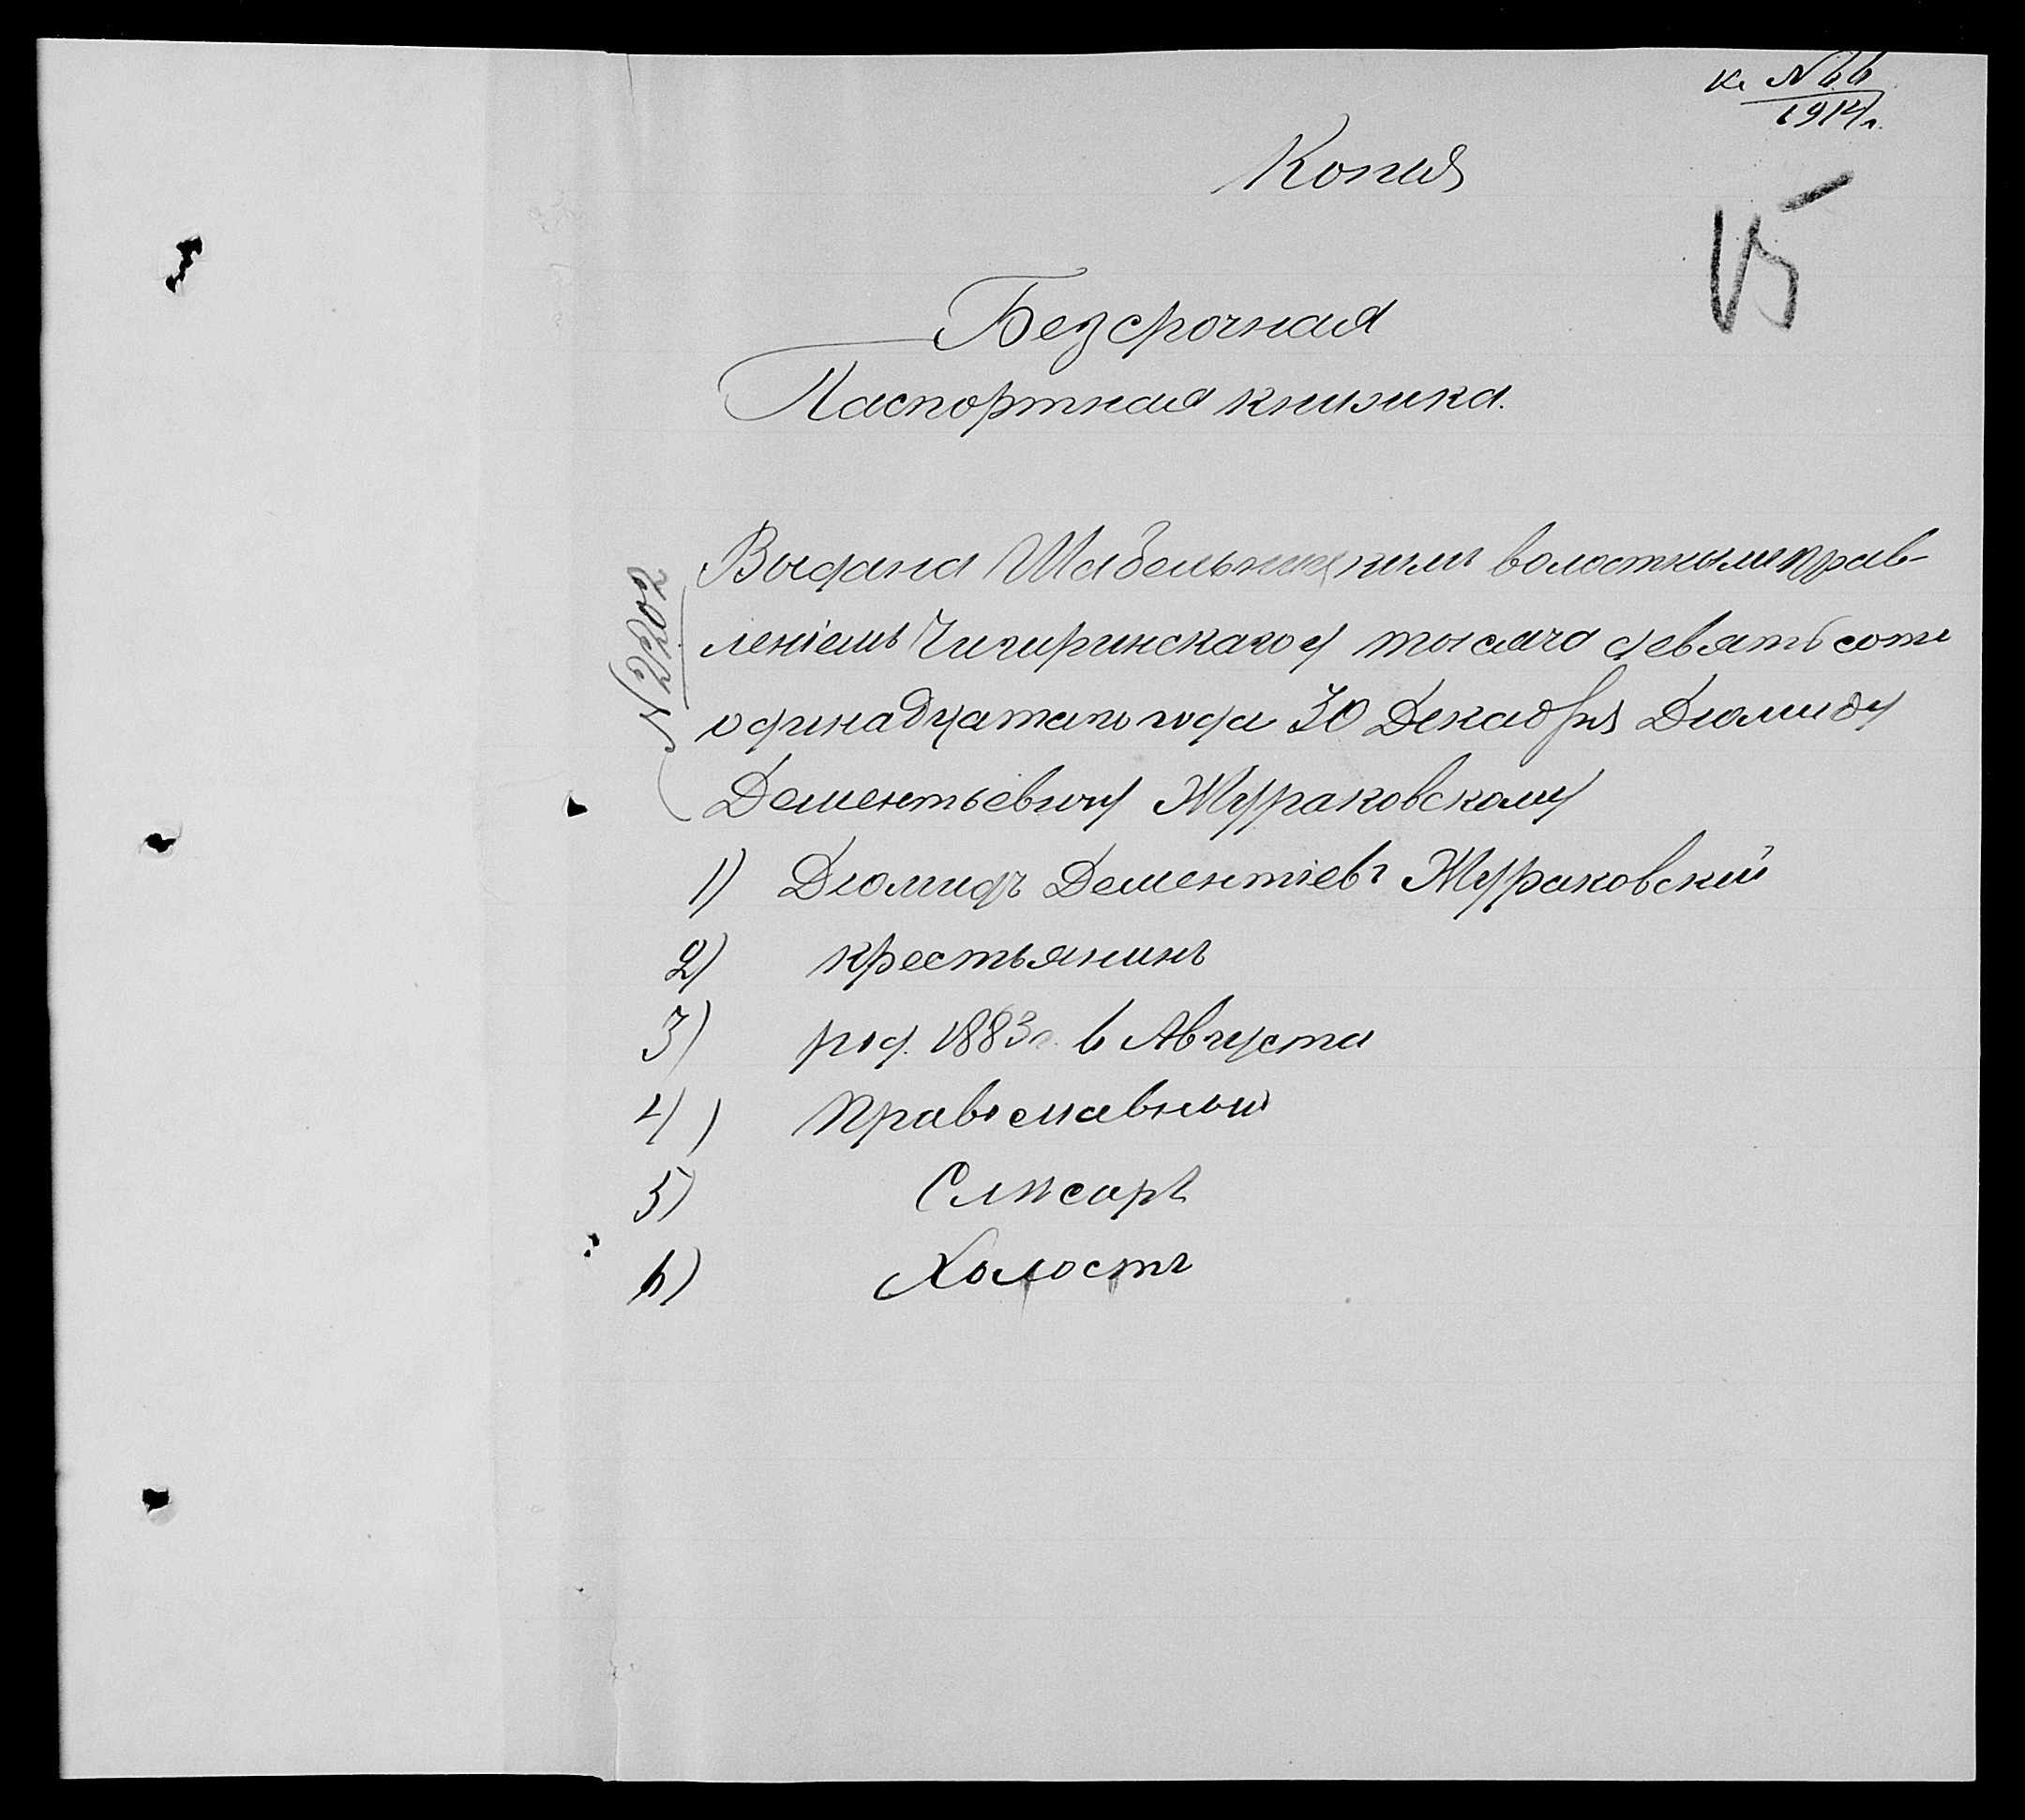 к. № 66
1914 г.
Копия
15
Безсрочная
Паспортная книжка.
№ 2202
Выдана Шабельницкимъ волостнымъ прав-
леніемъ Чигиринскаго у тысяча девятьсотъ
одинадцатаго года 30 Декабря Диомиду
Дементьевичу Жураковскому
1) Диомидъ Дементіевъ Жураковскій
2) крестьянинъ
3) род. 1883 г. 6 Августа
4) Православный
5) Слесарь
6) Холостъ